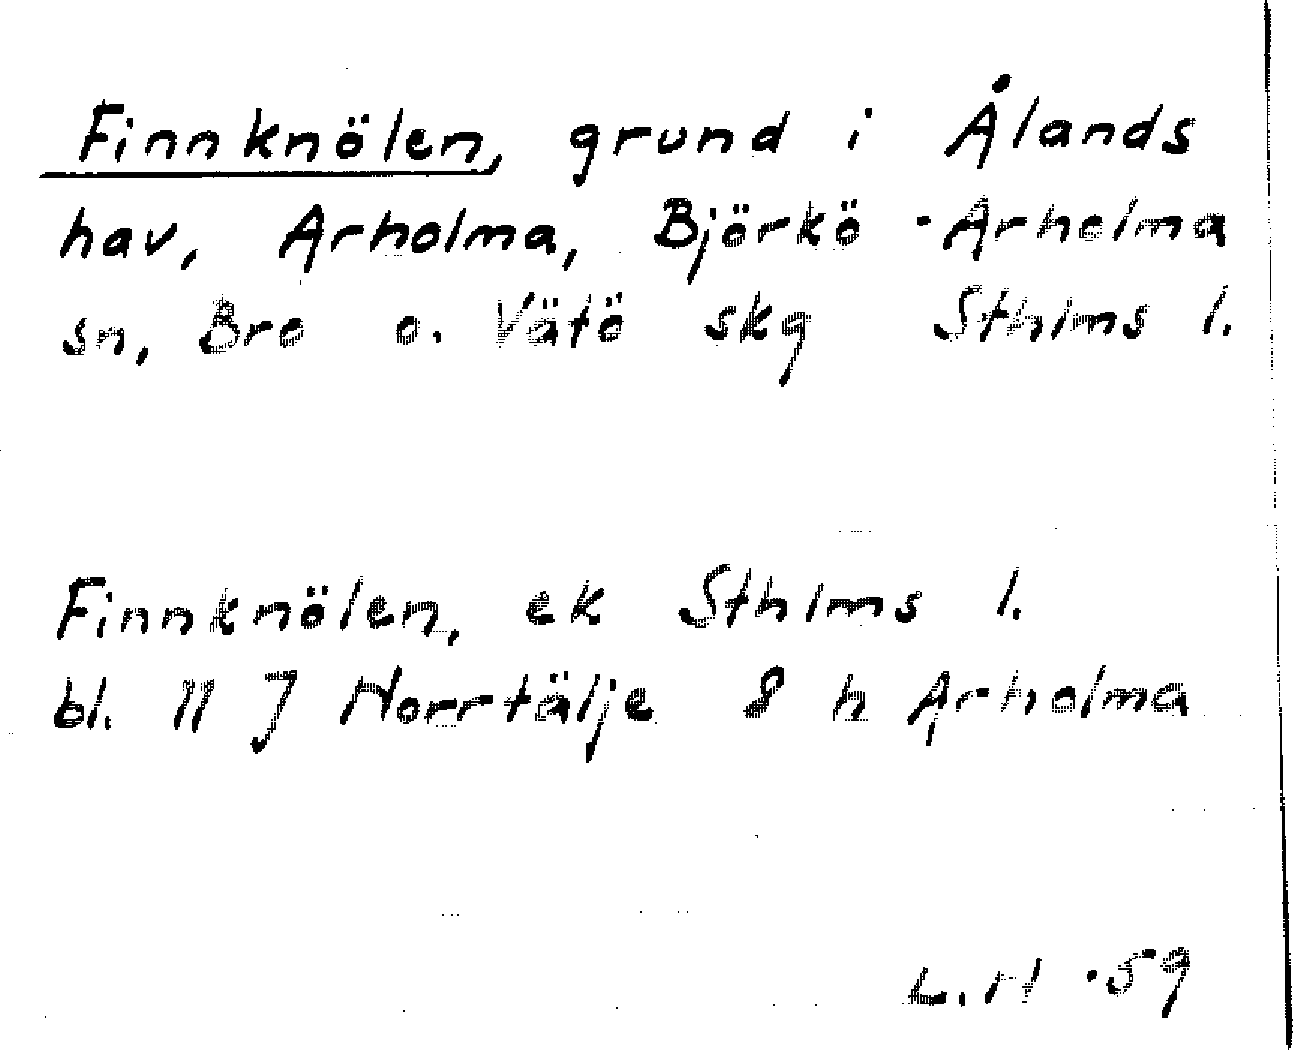 Finnknölen, grund i Ålands
hav, Arholma, Björkö-Arholma
sn, Bro o. Vätö skg Sthlms l.
Finnknölen, ek Sthlms l.
bl. 11 J Norrtälje 8 h Arholma
L.H -59